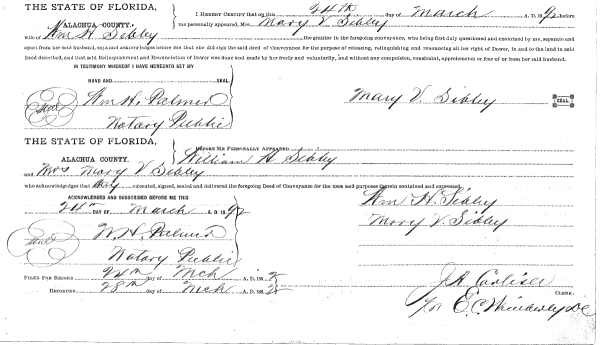 THE STATE OF FLORIDA,
ALACHUA COUNTY.
I HEREBY CERTIFY that on this 24th day of March A. D. 1892 before
me personally appeared, Mary V Sibley
wife of Wm H. Sibley the grantor in the foregoing conveyance, who being first duly questioned and examined by me, separate and
apart from her said husband, say s and acknowledges before me that she did sign the said deed of Conveyance for the purpose of releasing, relinquishing and renouncing all her right of Dower, in and to the land in said
Deed described, and that said Relinquishment and Renunciation of Dower was done and made by her freely and voluntarily, and without any compulsion, constraint, apprehension or fear of or from her said husband.
IN TESTIMONY WHEREOF I HAVE HEREUNTO SET MY
HAND AND SEAL
Seal Wm H. Palmer Mary V. Sibley SEAL
Notary Public
THE STATE OF FLORIDA,
ALACHUA COUNTY.
BEFORE ME PERSONALLY APPEARED
William H Sibley
and Mrs Mary V Sibley
who acknowledges that they executed, signed, sealed and delivered the foregoing Deed of Conveyance for the uses and purposes therein contained and expressed.
ACKNOWLEDGED AND SUBSCRIBED BEFORE ME THIS
24th DAY OF March A. D. 1892
Wm H. Sibley
Mary V. Sibley
Seal W. H. Palmer
Notary Public
FILED FOR RECORD 24th day of Mch A. D. 1892
RECORDED 28th day of Mch A. D. 1892
J. A. Carlisle CLERK.
Per E. C. Wimberly DC